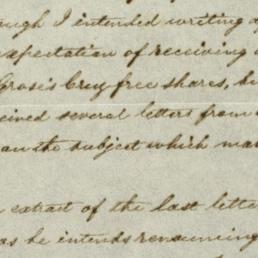 ough I intended writing
expectation of receiving
Grose's Cruz free shares,
ceived several letters from
on the subject which
extract of the last lette
as he intends renouncing